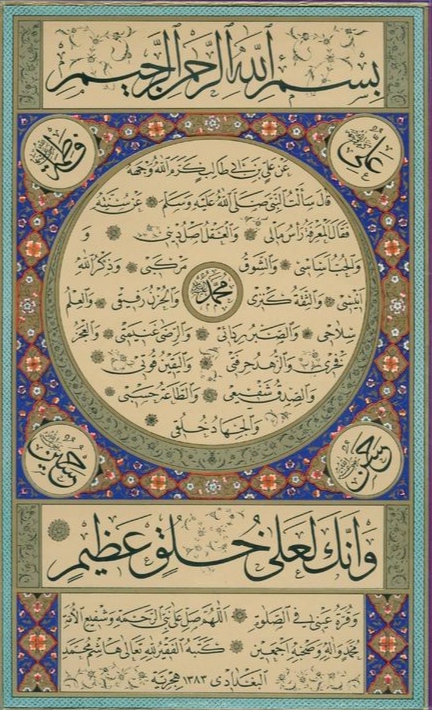 بسم الله الرحمن الرحيم
علي
فاطمة
عن علي بن أبي طالب كرم الله وجهه
قال سألت النبي صلى الله عليه وسلم عن سنته
فقال المعرفة رأس مالي والعقل أصل ديني
والحب أساسي والشوق مركبي وذكر الله
أنيسي والثقة كنزي محمد والحزن رفيقي والعلم
سلاحي والصبر ردائي والرضى غنيمتي والعجز
فخري والزهد حرفتي واليقين قوتي
والصدق شفيعي والطاعة حسبي
والجهاد خلقي
حسن
حسين
وانك لعلى خلق عظيم
وقرة عيني في الصلوة اللهم صل على نبي الرحمة وشفيع الأمة
محمد وآله وصحبه أجمعين كتبه الفقير لله تعالى هاشم محمد
البغدادي ١٣٨٣ هجرية